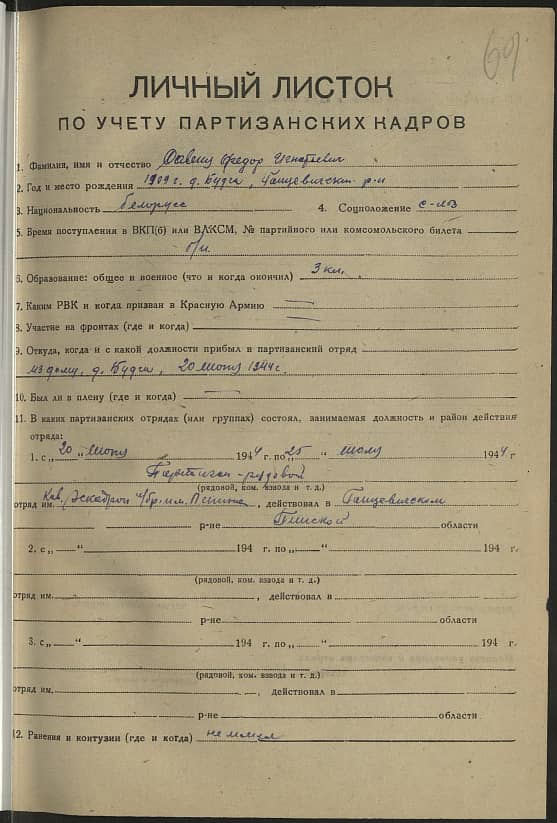 69
ЛИЧНЫЙ ЛИСТОК
ПО УЧЕТУ ПАРТИЗАНСКИХ КАДРОВ
1. Фамилия, имя и отчество Федор Игнатьевич
2. Год и место рождения 1909 г. д. Будча, Ганцевичский р-н
3. Национальность белорусс 4. Соцположение
5. Время поступления в ВКП(б) или ВЛКСМ, № партийного или комсомольского билета
б/п.
6. Образование: общее и военное (что и когда окончил) 3 кл.
7. Каким РВК и когда призван в Красную Армию —
8. Участие на фронтах (где и когда) —
9. Откуда, когда и с какой должности прибыл в партизанский отряд
из дому, д. Будча, 20 1944 г.
10. Был ли в плену (где и когда) —
11. В каких партизанских отрядах (или группах) состоял, занимаемая должность и район действия
отряда:
1. с „20" 1944 г. по „25" июля 1944 г
Партизан-рядовой
(рядовой, ком. взвода и т. д.)
отряд им. Кав. Эскадрон бр. им. , действовал в Ганцевичском
р-не Пинской области
2. с „—" 194 г. по „—" 194 г
(рядовой, ком. взвода и т. д.)
отряд им. , действовал в
р-не области
3. с „—" 194 г. по „—" 194 г.
(рядовой, ком. взвода и т. д.)
отряд им. , действовал в
р-не области
12. Ранения и контузии (где и когда) не имел